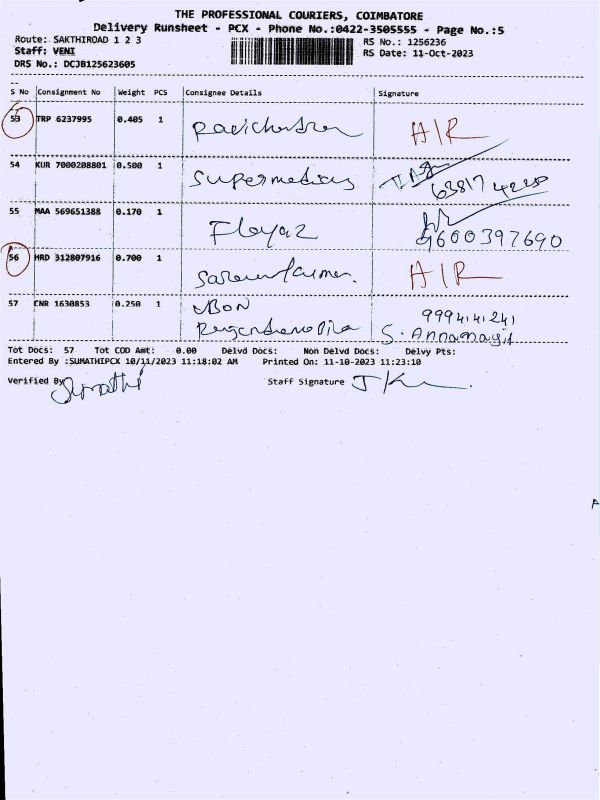 THE PROFESSIONAL COURIERS, COIMBATORE
Delivery Runsheet - PCX - Phone No.:0422-3505555 - Page No.:5
Route: SAKTHIROAD 1 2 3 RS No.: 1256236
Staff: VENI RS Date: 11-Oct-2023
DRS No.: DCJB125623605
S No Consignment No Weight PCS Consignee Details Signature
53 TRP 6237995 0.405 1 Ravichandran A/R
54 KUR 7000208801 0.500 1 Supermedicas
55 MAA 569651388 0.170 1 Flayaz 9600397690
56 HRD 312807916 0.700 1 A/R
57 CNR 1630853 0.250 1 UBON 9994141241
S. Annamayil
Tot Docs: 57 Tot COD Amt: 0.00 Delvd Docs: Non Delvd Docs: Delvy Pts:
Entered By :SUMATHIPCX 10/11/2023 11:18:02 AM Printed On: 11-10-2023 11:23:10
Verified By Sumathi Staff Signature